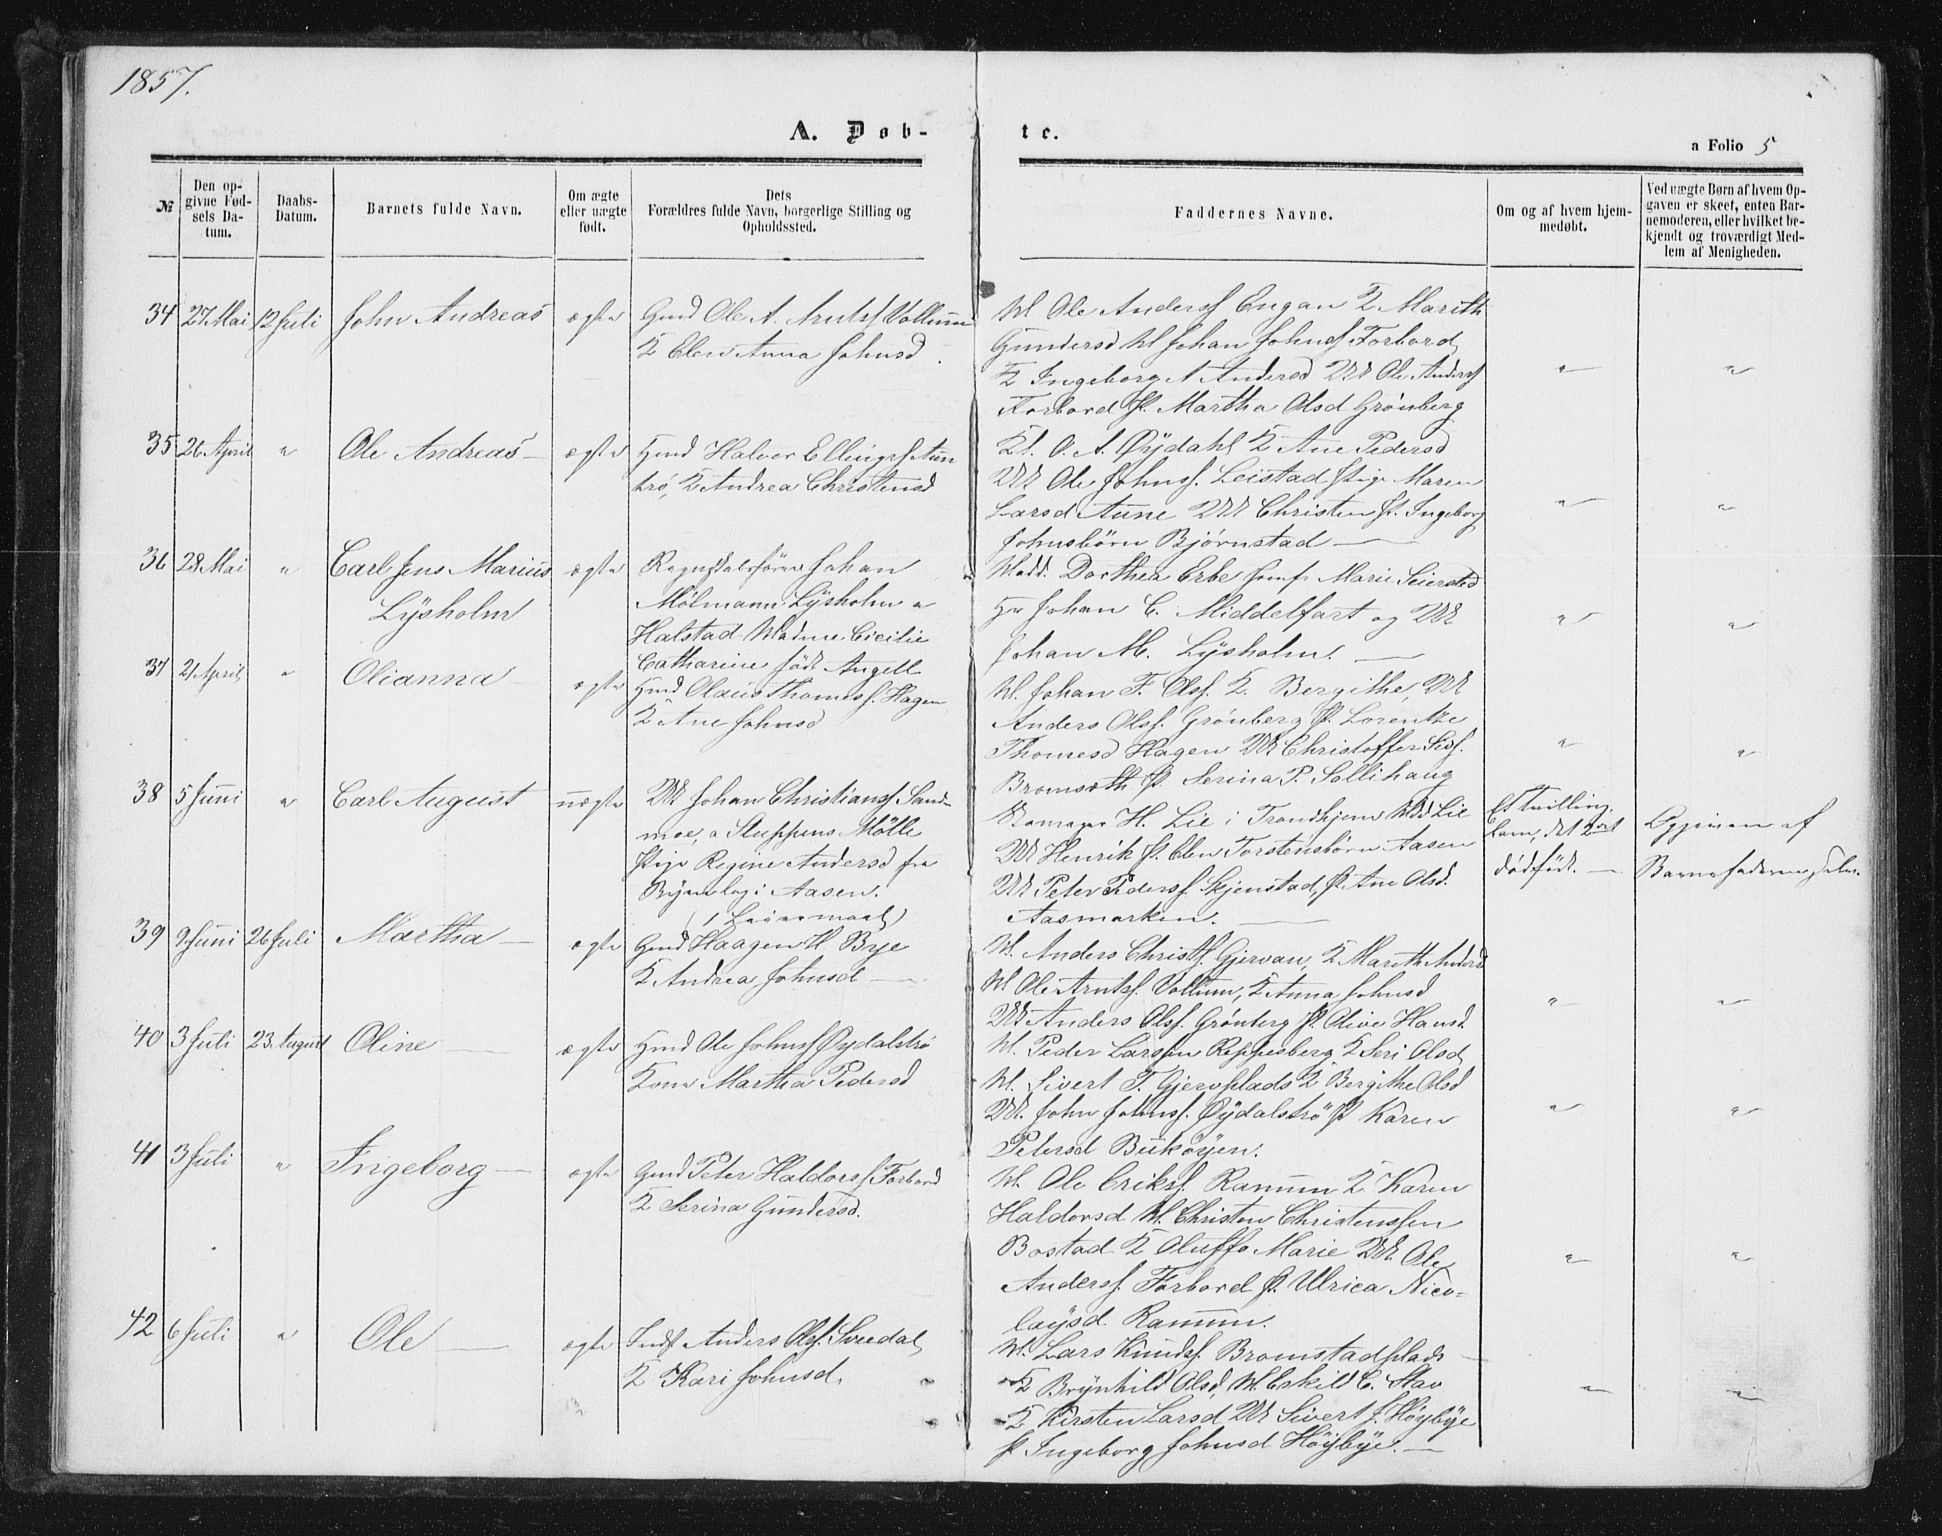 1857.
A. Døb-
te.
a Folio 5
№
Den op-
givne Fød-
sels Da-
tum.
Daabs-
Datum.
Barnets fulde Navn.
Om ægte
eller uægte
født.
Dets
Forældres fulde Navn, borgerlige Stilling og
Opholdssted.
Faddernes Navne.
Om og af hvem hjem-
medøbt.
Ved uægte Børn af hvem Op-
gaven er skeet, enten Bar-
nemoderen, eller hvilket be-
kjendt og troværdigt Med-
lem af Menigheden.
34 27 Mai 12 Juli John Andreas ægte
Gmd Ole A. Arntsf Vollum
K Elen Anna Johnsd
M Ole Andersf Engan K Marith
Gundersd M Johan Johnsf Forbord
K Ingeborg A Andersd UK Ole Andersf
Forbord P. Martha Olsd Grønberg
" "
35 26 April " Ole Andreas - ægte
Hmd Halvor Ellingsf Aun
trø, K Andrea Christensd
Kl. O. A. Øydahl K Ane Pedersd
UK Ole Johnsf. Leistad Pige Maren
Larsd Aune UK Christen P. Ingeborg
Johnsbörn Bjørnstad
" "
36 28 Mai " Carl Jens Marius
Lysholm
ægte
Regnskabsfører Johan
Mølmann Lysholm a
Halstad Madme Cicilie
Catharine født Angell
Madd. Dorthea Erbe Jomf Marie Seiersted
Hr Johan C. Middelfart og UK
Johan M. Lysholm.
" "
37 21 April " Olianna ægte
Hmd Olaus Thomesf. Hagen
K Ane Johnsd
M. Johan F. Olsf. K. Bergithe, UK
Anders Olsf. Grønberg P. Lorentze
Thomesd Hagen UK Christoffer Sivs.
Bromsæth P. Serina P. Sollihaug
" "
38 5 Juni " Carl August uægte
UK Johan Christiansf Sand-
moe, a Stuppens Mölle
Pige Regine Andersd fra
i Aasen.
(1 Leiermaal)
H. Lie i Trondhjem Md Lie
UK Henrik P. Elen Torstensbörn Aasen
UK Peter Pedersf. Skjenstad, P. Ane Olsd.
Aasmarken.
Et Tvilling
barn, det 2det
dødfødt.
Opgiven af
Barnefaderen selv.
39 9 Juni 26 Juli Martha ægte
Gmd Haagen H Bye
K Andrea Johnsd
M. Anders Christsf. Gjervan, K Marith Andersd
M Ole Arntsf. Vollum, K Anna Johnsd
UK Anders Olsf. Grønberg P. Olive Hansd.
" "
40 3 Juli 23 August Oline ægte
Hmd Ole Johnsf Øydalstrø
Kone Martha Pedersd
M. Peder Larssen Reppesberg K Seri Olsd
M. Sivert T. Gjervsplads K Bergithe Olsd
UK. John Johnsf. Øydalströ P Karen
Petersd Bukøyen.
" "
41 3 Juli " Ingeborg - ægte
Gmd Peter Haldorsf Forbord
K Serina Gundersd.
M. Ole Eriksf Ramum K Karen
Haldorsd M. Christen Christenssen
Bostad K Oluffe Marie UK Ole
Andersf. Forbord P. Ulrica Nico-
laysd. Ramum.
" "
42 6 Juli " Ole ægte
Inds Anders Olsf. Svedal
K Kari Johnsd.
M. Lars Knudsf. Bromstadplads
K Brynhild Olsd, M. Eskild C. Stav
K Kirsten Larsd UK Sivert J. Høybye
P Ingeborg Johnsd Høybye.
" "